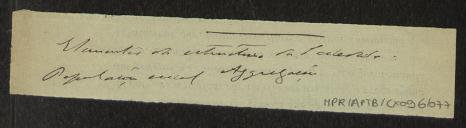 Elementos da estructura da Sociedade.
População social Aggregação
MPR/APTB/CX096/077